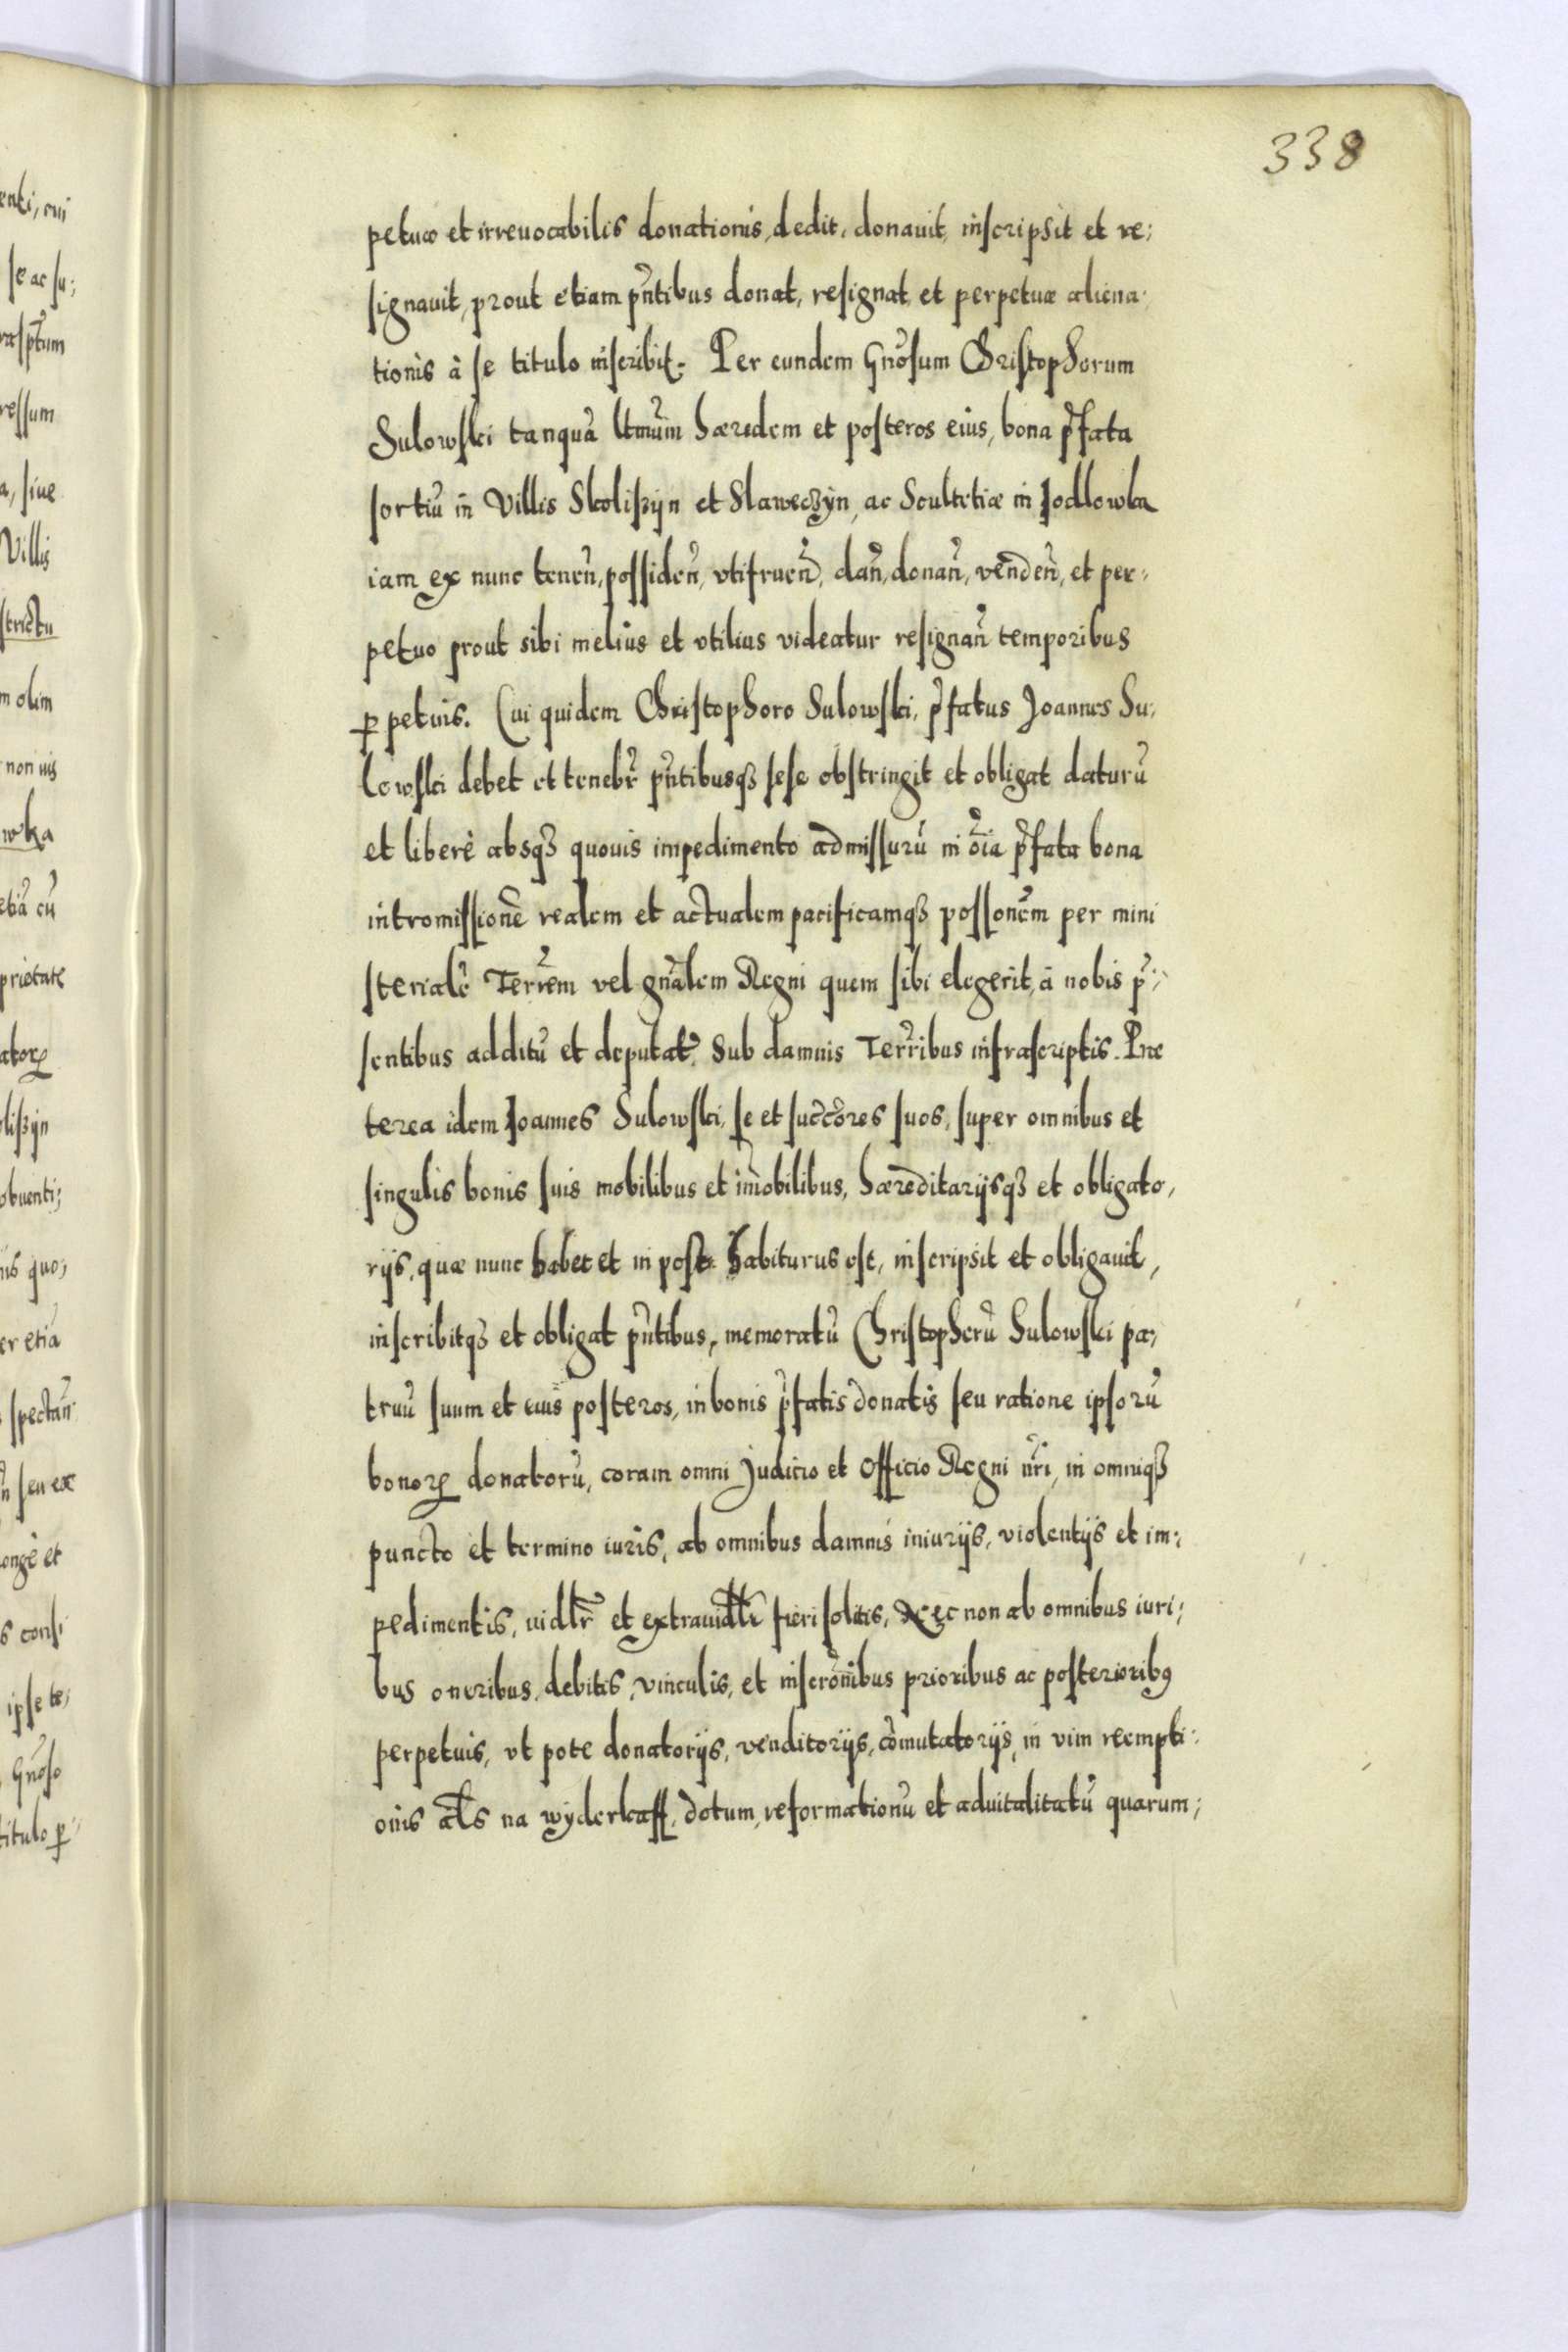 338
petuæ et irreuocabilis donationis, dedit, donauit, inscripsit et re;
signauit, prout etiam pñtibus donat, resignat et perpetuæ aliena:
tionis à se titulo inscribit. Per eundem Gnõsum Christophorum
Sulowski tanquã ltmũm hæredem et posteros eius, bona p̃fata
sortiũ in Villis Skoliszÿn et Slawęczÿn, ac Scultetiæ in Jodlowka
iam ex nunc tenen̄, possiden̄, vtifruen̄d, dan̄, donan̄, venden̄, et per:
petuo prout sibi melius et vtilius videatur resignan̄ temporibus
ꝑpetuis. Cui quidem Christophoro Sulowski, p̃fatus Joannes Su:
lowski debet et tenebr̃ pñtibusqꝫ sese obstringit et obligat daturũ
et liberè absqꝫ quouis impedimento admissurũ in oĩa p̃fata bona
intromissionẽ realem et actualem pacificamqꝫ possonẽm per mini
sterialẽ Terrẽm vel gnãlem Regni quem sibi elegerit, à nobis p̃:
sentibus additũ et deputat̃. Sub damnis Terrĩbus infrascriptis. Præ
terea idem Joannes Sulowski, se et succõres suos, super omnibus et
singulis bonis suis mobilibus et im̃obilibus, hæreditarijsqꝫ et obligato,
rijs, quæ nunc habet et in post habiturus est, inscripsit et obligauit,
inscribitqꝫ et obligat pñtibus, memoratũ Christopherũ Sulowski pa,
truũ suum et eius posteros, in bonis p̃fatis donatis seu ratione ipsorũ
bonoꝝ donatorũ, coram omni Judicio et Officio Regni nr̃i, in omniqꝫ
puncto et termino iuris, ab omnibus damnis iniurijs, violentijs et im:
pedimentis, uidlr̃ et extrauidlr̃ fieri solitis, Nec non ab omnibus iuri;
bus oneribus, debitis, vinculis, et inscrõnibus prioribus ac posterioribꝰ
perpetuis, vt pote donatorijs, venditorijs, com̃utatorijs, in vim reempti:
onis al̃s na wÿderkaff, dotum, reformationũ et aduitalitatũ quarum;